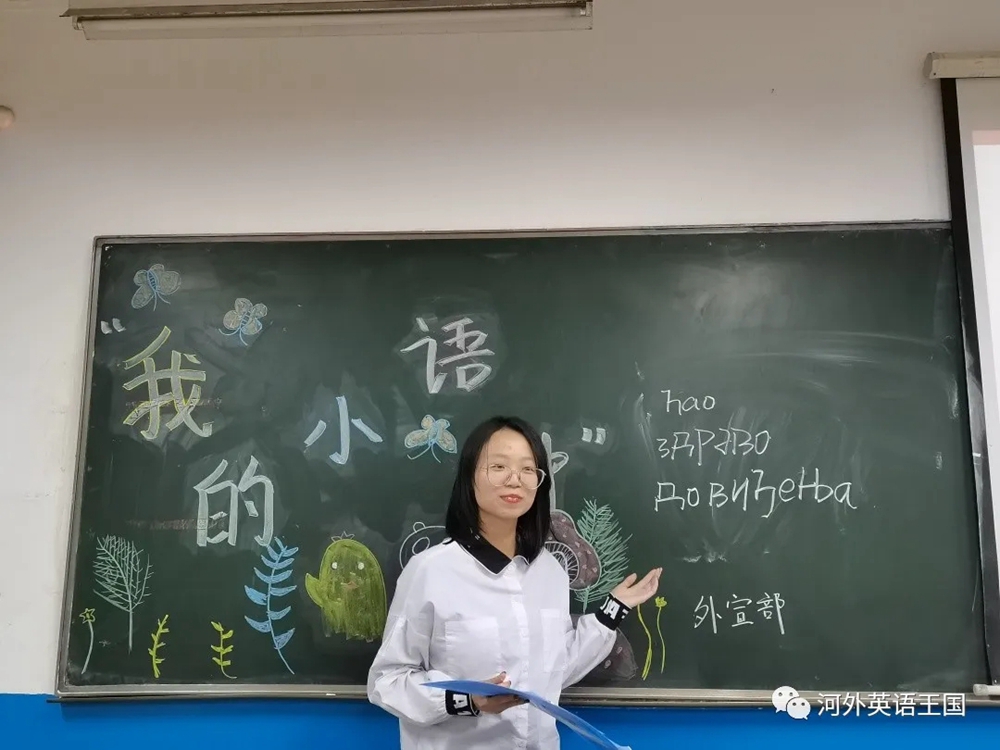 “我的小语 ”
ћao
здРаВО
ДоВиђења
外宣部
河外英语王国